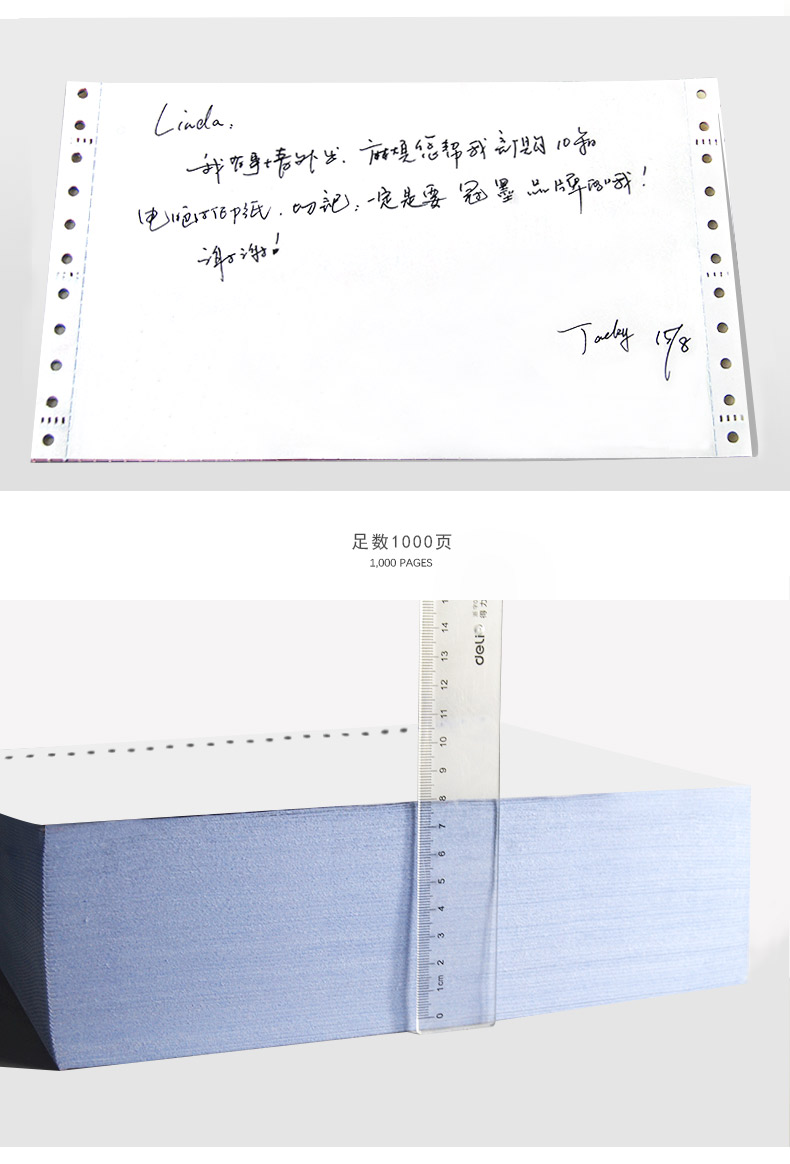 Linda,
我有事情外出,麻烦您帮我订购10箱
电脑打印纸,切记,一定是要 冠墨 品牌的哦!
谢谢!
Jacky 15/8
足数1000页
1,000 PAGES
14
得力
deli
13
12
11
10
9
8
7
6
5
4
3
2
1cm
0